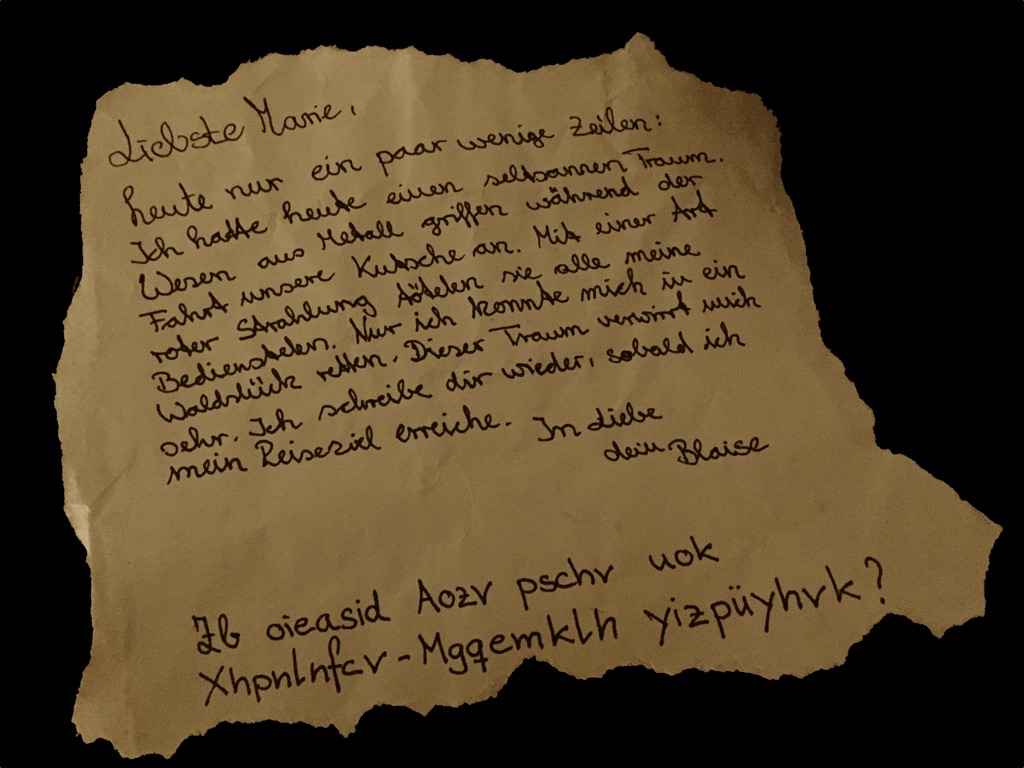 Liebste Marie,
heute nur ein paar wenige Zeilen:
Ich hatte heute einen seltsamen Traum.
Wesen aus Metall griffen während der
Fahrt unsere Kutsche an. Mit einer Art
roter Strahlung töteten sie alle meine
Bediensteten. Nur ich konnte mich in ein
Waldstück retten. Dieser Traum verwirrt mich
sehr. Ich schreibe dir wieder, sobald ich
mein Reiseziel erreiche. In Liebe
dein Blaise
Zb oieasid Aozv pschv uok
Xhpnlnfcv-Mgqemklh yizpüyhvk?